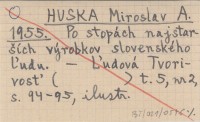 HUSKA Miroslav A.
1955. Po stopách najstar-
ších výrobkov slovenského
ľudu. - Ľudová Tvori-
vosť ( ) t. 5, nr 2,
s. 94-95, ilustr.